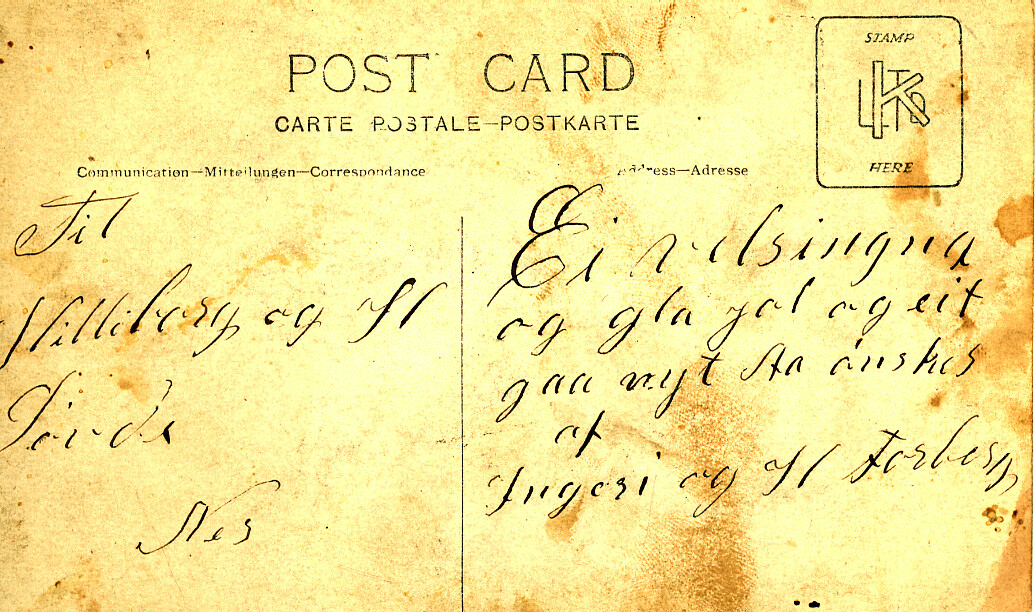 POST CARD
CARTE POSTALE—POSTKARTE
Communication—Mitteilungen—Correspondance
Address—Adresse
STAMP
HERE
Til
Hilleborg og H
Förde
Nes
Ei velsingna
og gla jol og eit
gaa nyt Aa önskes
af
Ingeri og H Torberg